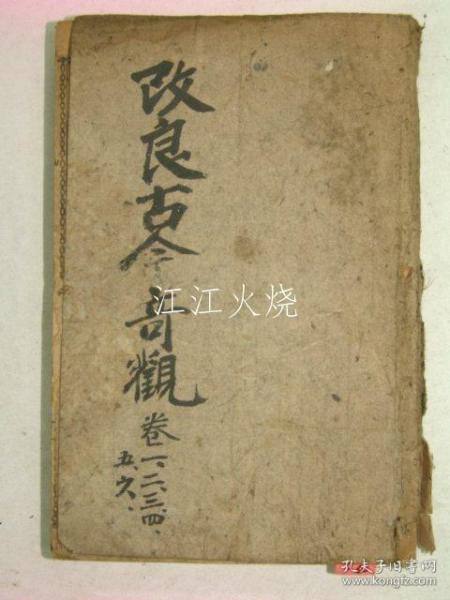 改良古今奇觀卷一、二、三、四、
五、六、
江江火烧
孔夫子旧书网
www.kongfz.com